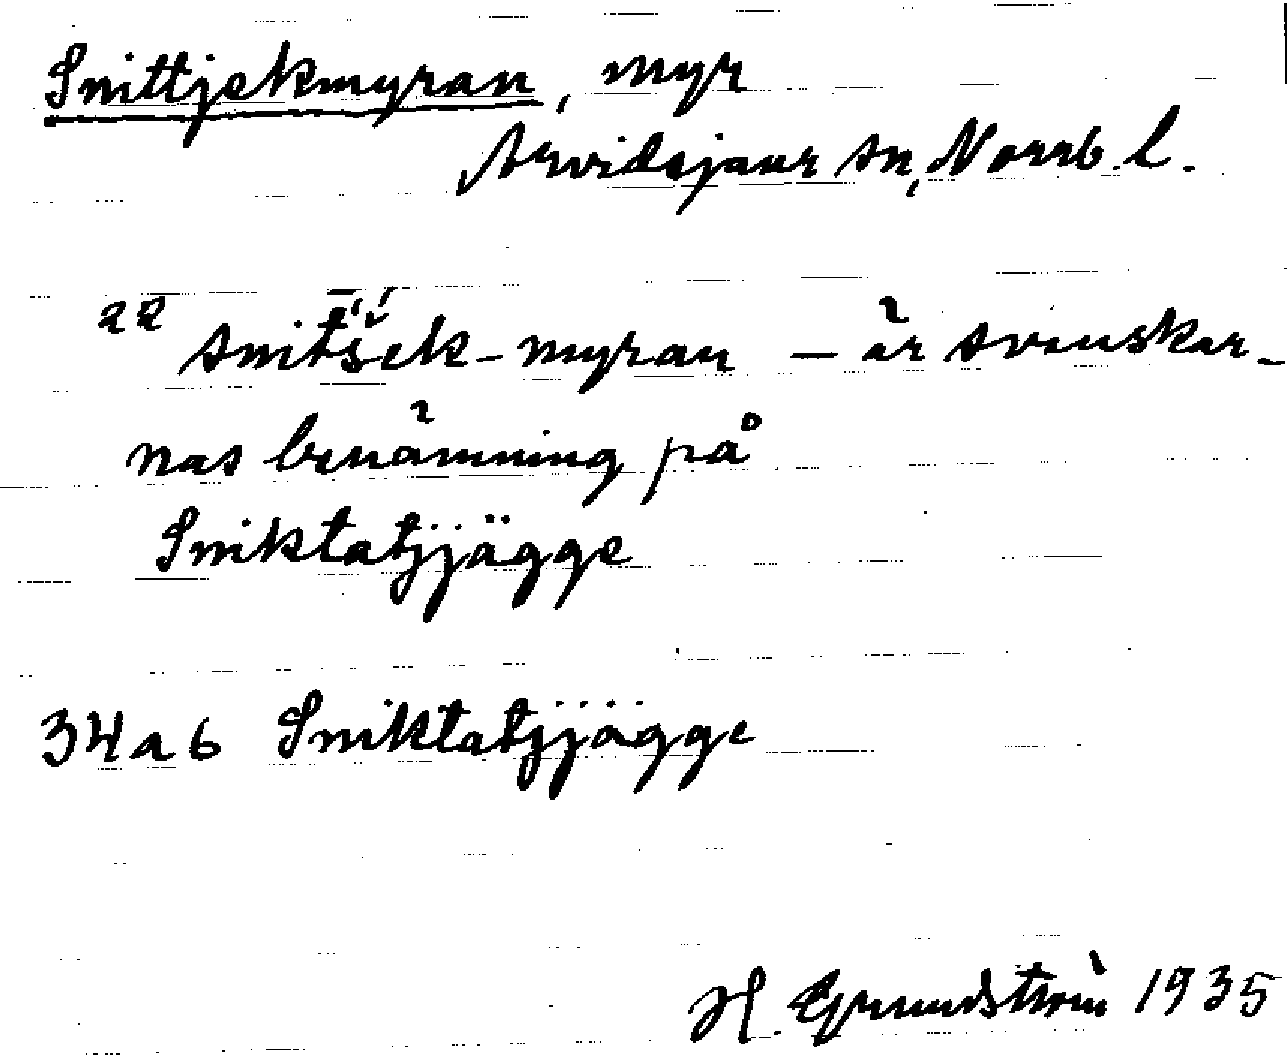 Snittjekmyran, myr
Arvidsjaur sn, Norrb. l.
22 snit́š́ek-myran – är svenskar-
nas benämning på
Sniktatjjägge
34 a 6 Sniktatjjägge
H. Grundström 1935